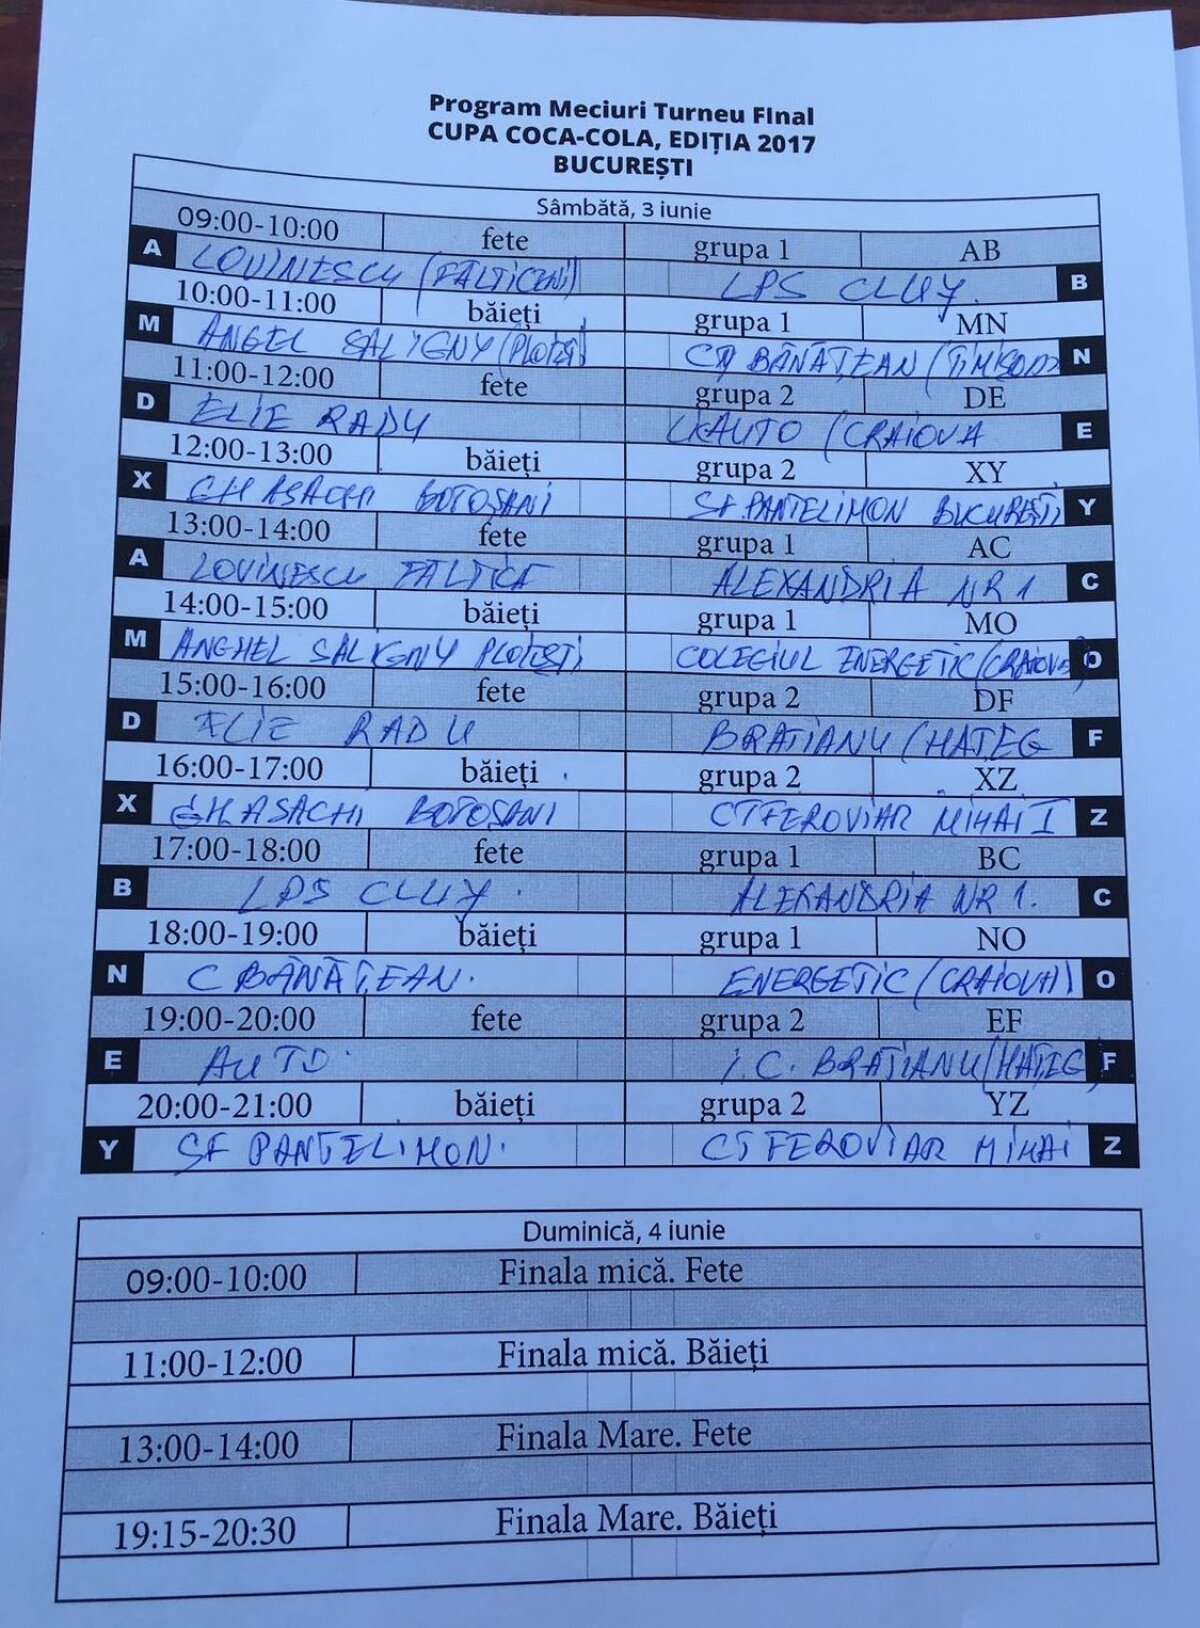 Program Meciuri Turneu FInal
CUPA COCA-COLA, EDIȚIA 2017
BUCUREȘTI
Sâmbătă, 3 iunie
09:00-10:00 fete grupa 1 AB
A LOVINESCU (FĂLTICENI) LPS CLUJ. B
10:00-11:00 băieți grupa 1 MN
M ANGEL SALIGNY (PLOIEȘTI) BĂNĂȚEAN N
11:00-12:00 fete grupa 2 DE
D ELIE RADU AUTO (CRAIOVA E
12:00-13:00 băieți grupa 2 XY
X GH ASACHI BOTOȘANI SF. PANTELIMON BUCUREȘTI Y
13:00-14:00 fete grupa 1 AC
A LOVINESCU ALEXANDRIA NR 1 C
14:00-15:00 băieți grupa 1 MO
M ANGHEL SALIGNY PLOIEȘTI COLEGIUL ENERGETIC (CRAIOVA) O
15:00-16:00 fete grupa 2 DF
D ELIE RADU BRATIANU (HAȚEG F
16:00-17:00 băieți grupa 2 XZ
X GH ASACHI BOTOȘANI CT FEROVIAR MIHAI I Z
17:00-18:00 fete grupa 1 BC
B LPS CLUJ. ALEXANDRIA NR 1. C
18:00-19:00 băieți grupa 1 NO
N C BĂNĂȚEAN. ENERGETIC (CRAIOVA) O
19:00-20:00 fete grupa 2 EF
E AUTO. I.C. BRATIANU (HAȚEG) F
20:00-21:00 băieți grupa 2 YZ
Y SF PANTELIMON. CT FEROVIAR MIHAI Z
Duminică, 4 iunie
09:00-10:00 Finala mică. Fete
11:00-12:00 Finala mică. Băieți
13:00-14:00 Finala Mare. Fete
19:15-20:30 Finala Mare. Băieți